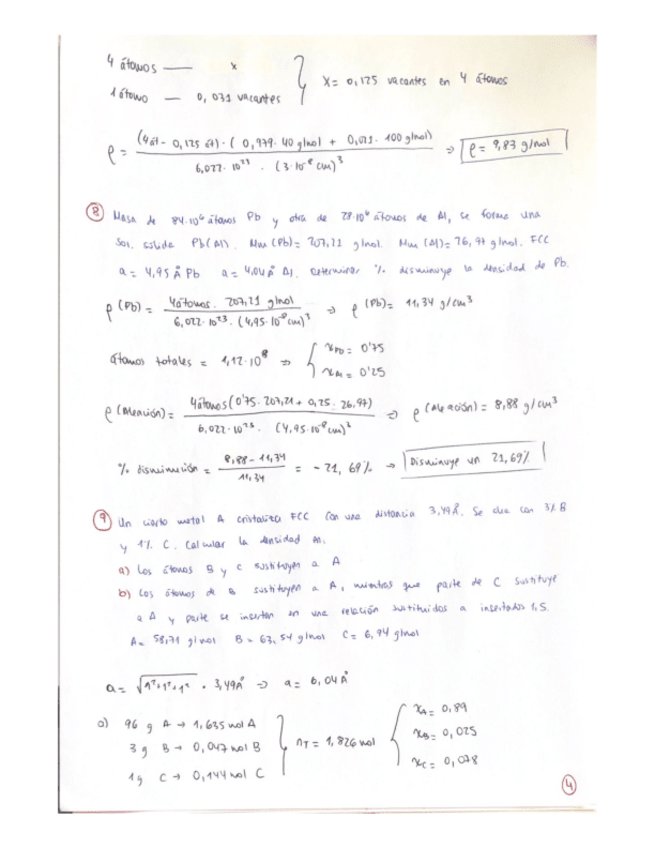 4 átomos — x
1 átomo — 0,031 vacantes
x = 0,125 vacantes en 4 átomos
ρ = (4át - 0,125 át) · (0,979 · 40 g/mol + 0,021 · 100 g/mol) / 6,022 · 10²³ · (3 · 10⁻⁸ cm)³ ⇒ ρ = 9,83 g/mol
8 Masa de 84·10⁶ átomos Pb y otra de 28·10⁶ átomos de Al, se forma una
Sol. sólida Pb(Al). Mm (Pb) = 207,21 g/mol. Mm (Al) = 26,97 g/mol. FCC
a = 4,95 Å Pb a = 4,04 Å Al. Determinar % disminuye la densidad de Pb.
ρ (Pb) = 4átomos · 207,21 g/mol / 6,022 · 10²³ · (4,95 · 10⁻⁸ cm)³ ⇒ ρ (Pb) = 11,34 g/cm³
átomos totales = 1,12·10⁸ ⇒ { x Pb = 0'75
x Al = 0'25
ρ (Aleación) = 4átomos (0'75 · 207,21 + 0,25 · 26,97) / 6,022 · 10²³ · (4,95 · 10⁻⁸ cm)³ ⇒ ρ (Aleación) = 8,88 g/cm³
% disminución = 8,88 - 11,34 / 11,34 = - 21,69% → Disminuye un 21,69%
9 Un cierto metal A cristaliza FCC con una distancia 3,49Å. Se alea con 3% B
y 1% C. Calcular la densidad si:
a) Los átomos B y C sustituyen a A
b) Los átomos de B sustituyen a A, mientras que parte de C sustituye
a A y parte se insertan en una relación sustituidos a insertados 1,5.
A = 58,71 g/mol B = 63,54 g/mol C = 6,94 g/mol
a = √1²+1²+1² · 3,49Å ⇒ a = 6,04 Å
a) 96 g A → 1,635 mol A
3 g B → 0,047 mol B
1g C → 0,144 mol C
nT = 1,826 mol
xA = 0,89
xB = 0,025
xC = 0,078
4